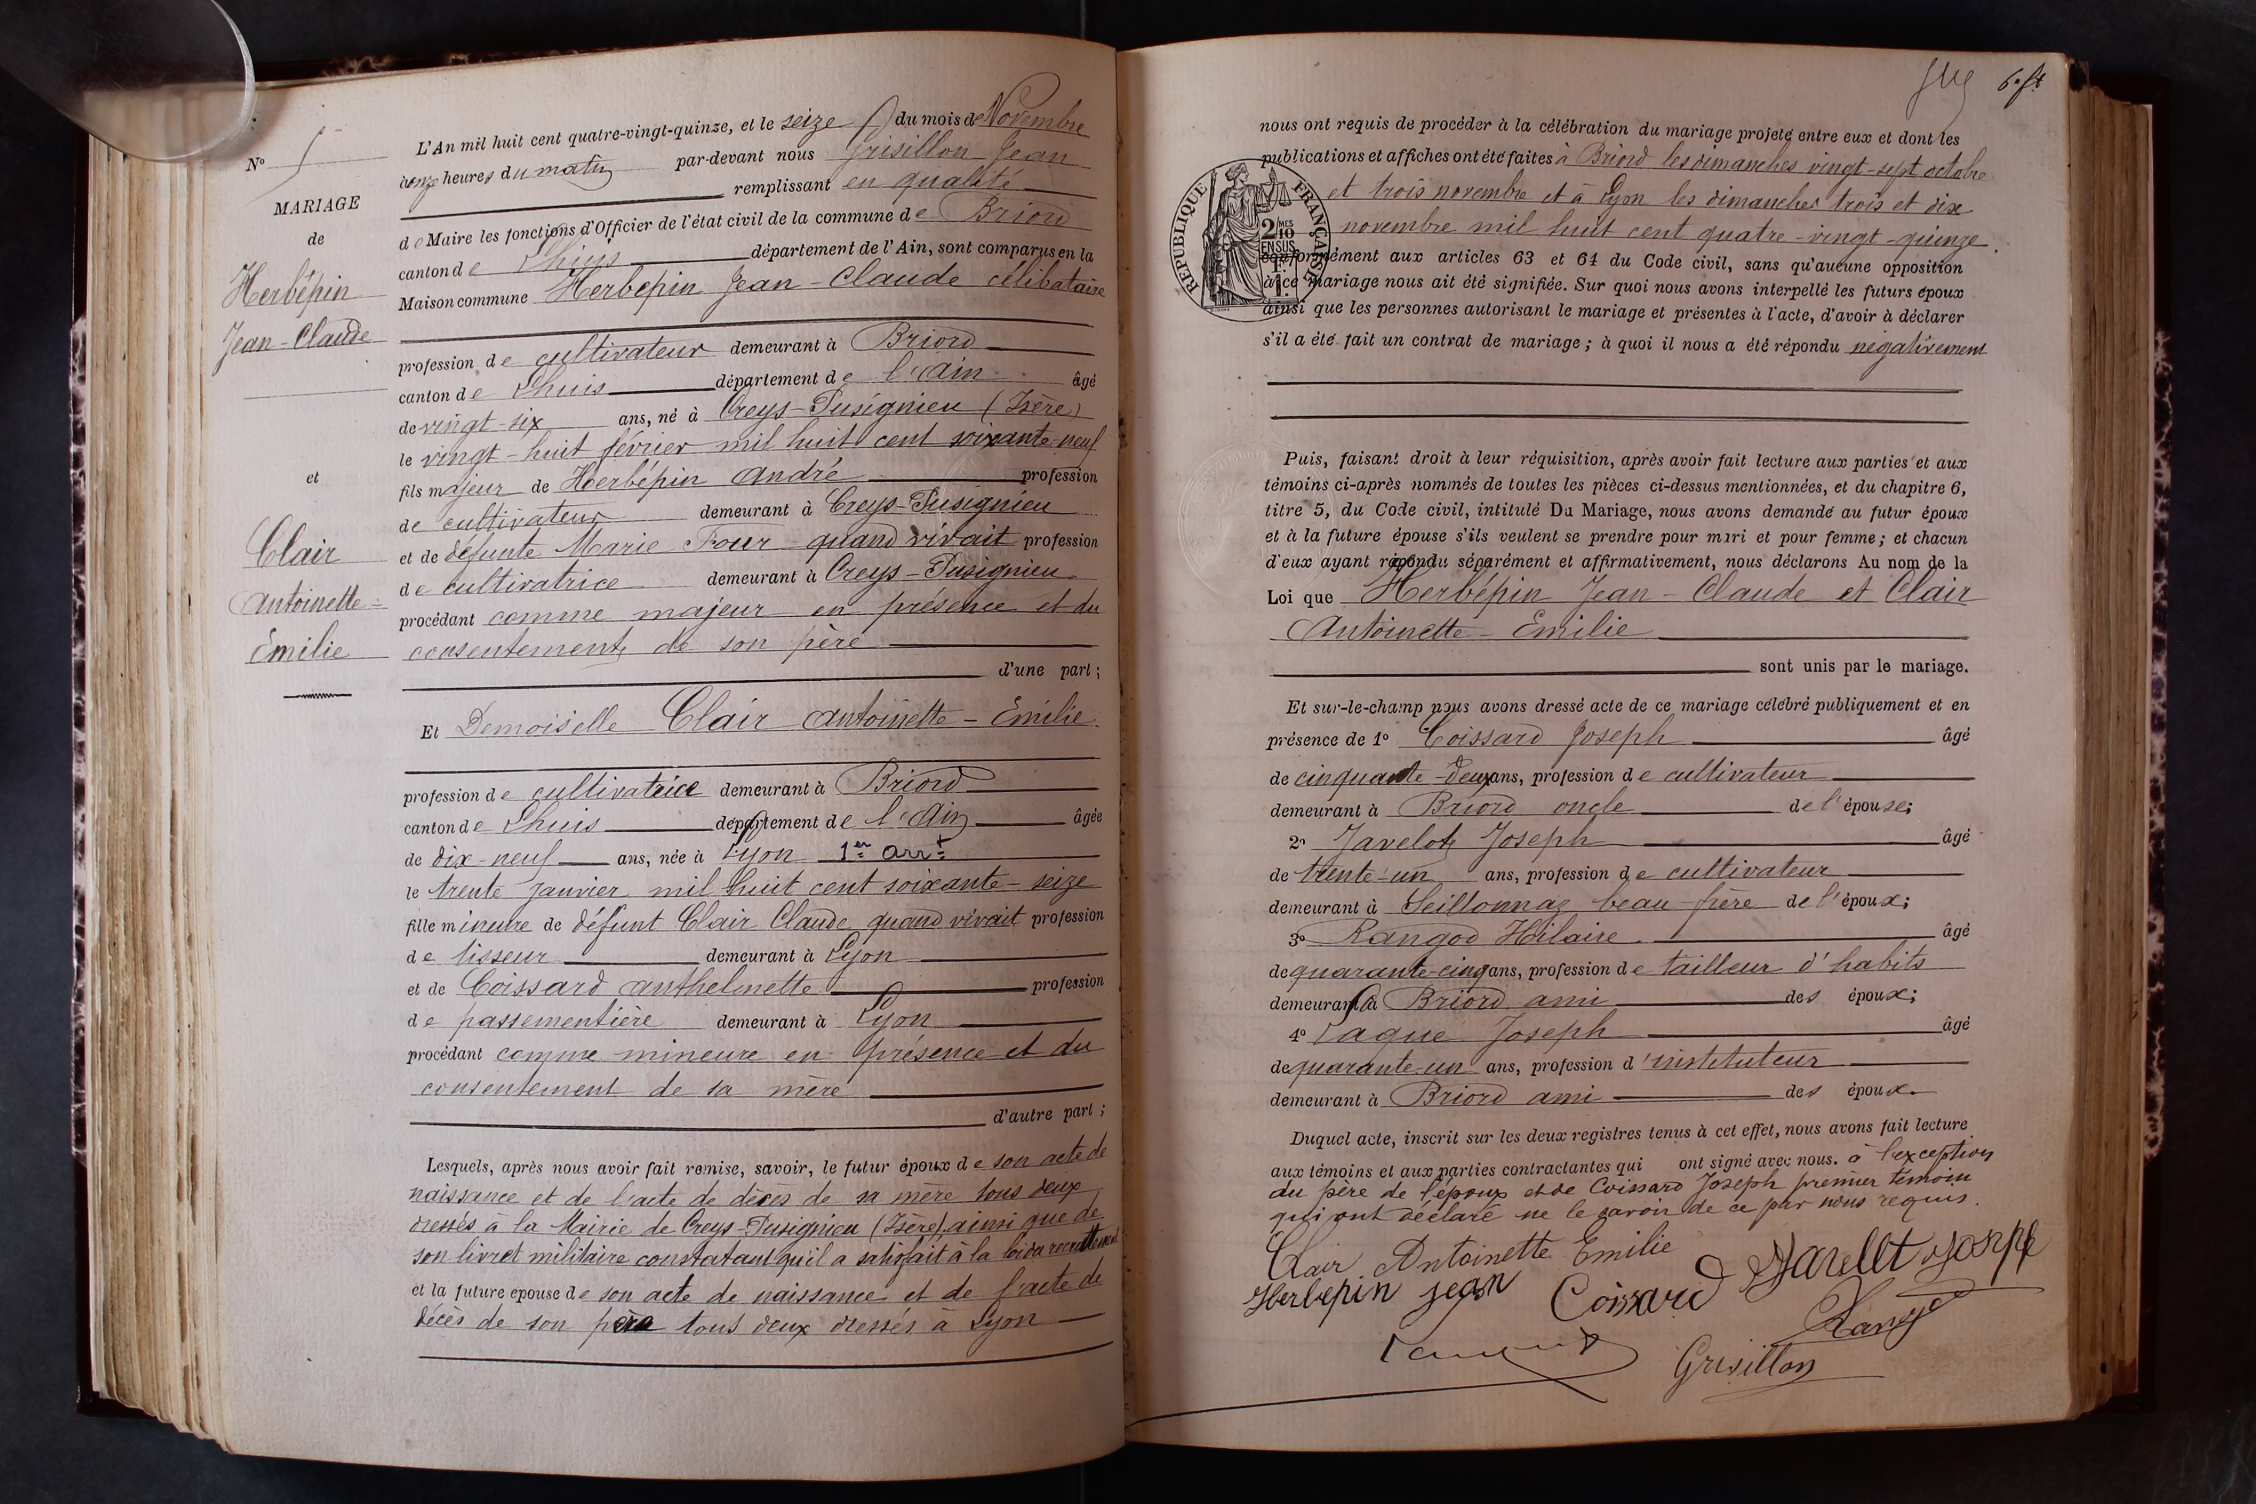 N° 5
MARIAGE
de
Herbépin
Jean-Claude
et
Clair
Antoinette-
Emilie
L'An mil huit cent quatre-vingt-quinze, et le seize du mois de Novembre
à onze heures du matin par-devant nous Grisillon Jean
remplissant en qualité
de Maire les fonctions d'Officier de l'état civil de la commune de Briord
canton de Lhuis département de l'Ain, sont comparus en la
Maison commune Herbépin Jean-Claude célibataire
profession de cultivateur demeurant à Briord
canton de Lhuis département de l'Ain âgé
de vingt-six ans, né à Creys-Pusignieu (Isère)
le vingt-huit février mil huit cent soixante-neuf
fils majeur de Herbépin André profession
de cultivateur demeurant à Creys-Pusignieu
et de défunte Marie Four quand vivait profession
de cultivatrice demeurant à Creys-Pusignieu
procédant comme majeur en présence et du
consentement de son père
d'une part;
Et Demoiselle Clair Antoinette-Emilie
profession de cultivatrice demeurant à Briord
canton de Lhuis département de l'Ain âgée
de dix-neuf ans, née à Lyon 1er arrt
le trente janvier mil huit cent soixante-seize
fille mineure de défunt Clair Claude quand vivait profession
de tisseur demeurant à Lyon
et de Coissard Anthelmette profession
de passementière demeurant à Lyon
procédant comme mineure en présence et du
consentement de sa mère
d'autre part;
Lesquels, après nous avoir fait remise, savoir, le futur époux de son acte de
naissance et de l'acte de décès de sa mère tous deux
dressés à la Mairie de Creys-Pusignieu (Isère), ainsi que de
son livret militaire constatant qu'il a satisfait à la loi du recrutement
et la future épouse de son acte de naissance et de l'acte de
décès de son père tous deux dressés à Lyon
nous ont requis de procéder à la célébration du mariage projeté entre eux et dont les
publications et affiches ont été faites à Briord les dimanches vingt-sept octobre
et trois novembre et à Lyon les dimanches trois et dix
novembre mil huit cent quatre-vingt-quinze.
RÉPUBLIQUE FRANÇAISE
2/10MES
EN SUS
1F.
conformément aux articles 63 et 64 du Code civil, sans qu'aucune opposition
à ce mariage nous ait été signifiée. Sur quoi nous avons interpellé les futurs époux
ainsi que les personnes autorisant le mariage et présentes à l'acte, d'avoir à déclarer
s'il a été fait un contrat de mariage; à quoi il nous a été répondu négativement
Puis, faisant droit à leur réquisition, après avoir fait lecture aux parties et aux
témoins ci-après nommés de toutes les pièces ci-dessus mentionnées, et du chapitre 6,
titre 5, du Code civil, intitulé Du Mariage, nous avons demandé au futur époux
et à la future épouse s'ils veulent se prendre pour mari et pour femme; et chacun
d'eux ayant répondu séparément et affirmativement, nous déclarons Au nom de la
Loi que Herbépin Jean-Claude et Clair
Antoinette-Emilie
sont unis par le mariage.
Et sur-le-champ nous avons dressé acte de ce mariage célébré publiquement et en
présence de 1° Coissard Joseph âgé
de cinquante-deux ans, profession de cultivateur
demeurant à Briord oncle de l'épouse;
2° Javelot Joseph âgé
de trente-un ans, profession de cultivateur
demeurant à Seillonnaz beau-frère de l'époux;
3° Rangod Hilaire âgé
de quarante-cinq ans, profession de tailleur d'habits
demeurant à Briord ami des époux;
4° Laque Joseph âgé
de quarante-un ans, profession d'instituteur
demeurant à Briord ami des époux.
Duquel acte, inscrit sur les deux registres tenus à cet effet, nous avons fait lecture
aux témoins et aux parties contractantes qui ont signé avec nous. à l'exception
du père de l'époux et de Coissard Joseph premier témoin
qui ont déclaré ne le savoir de ce par nous requis.
Clair Antoinette Emilie
Herbepin jean Coissard Javellt Josepf
Rangod
Grisillon